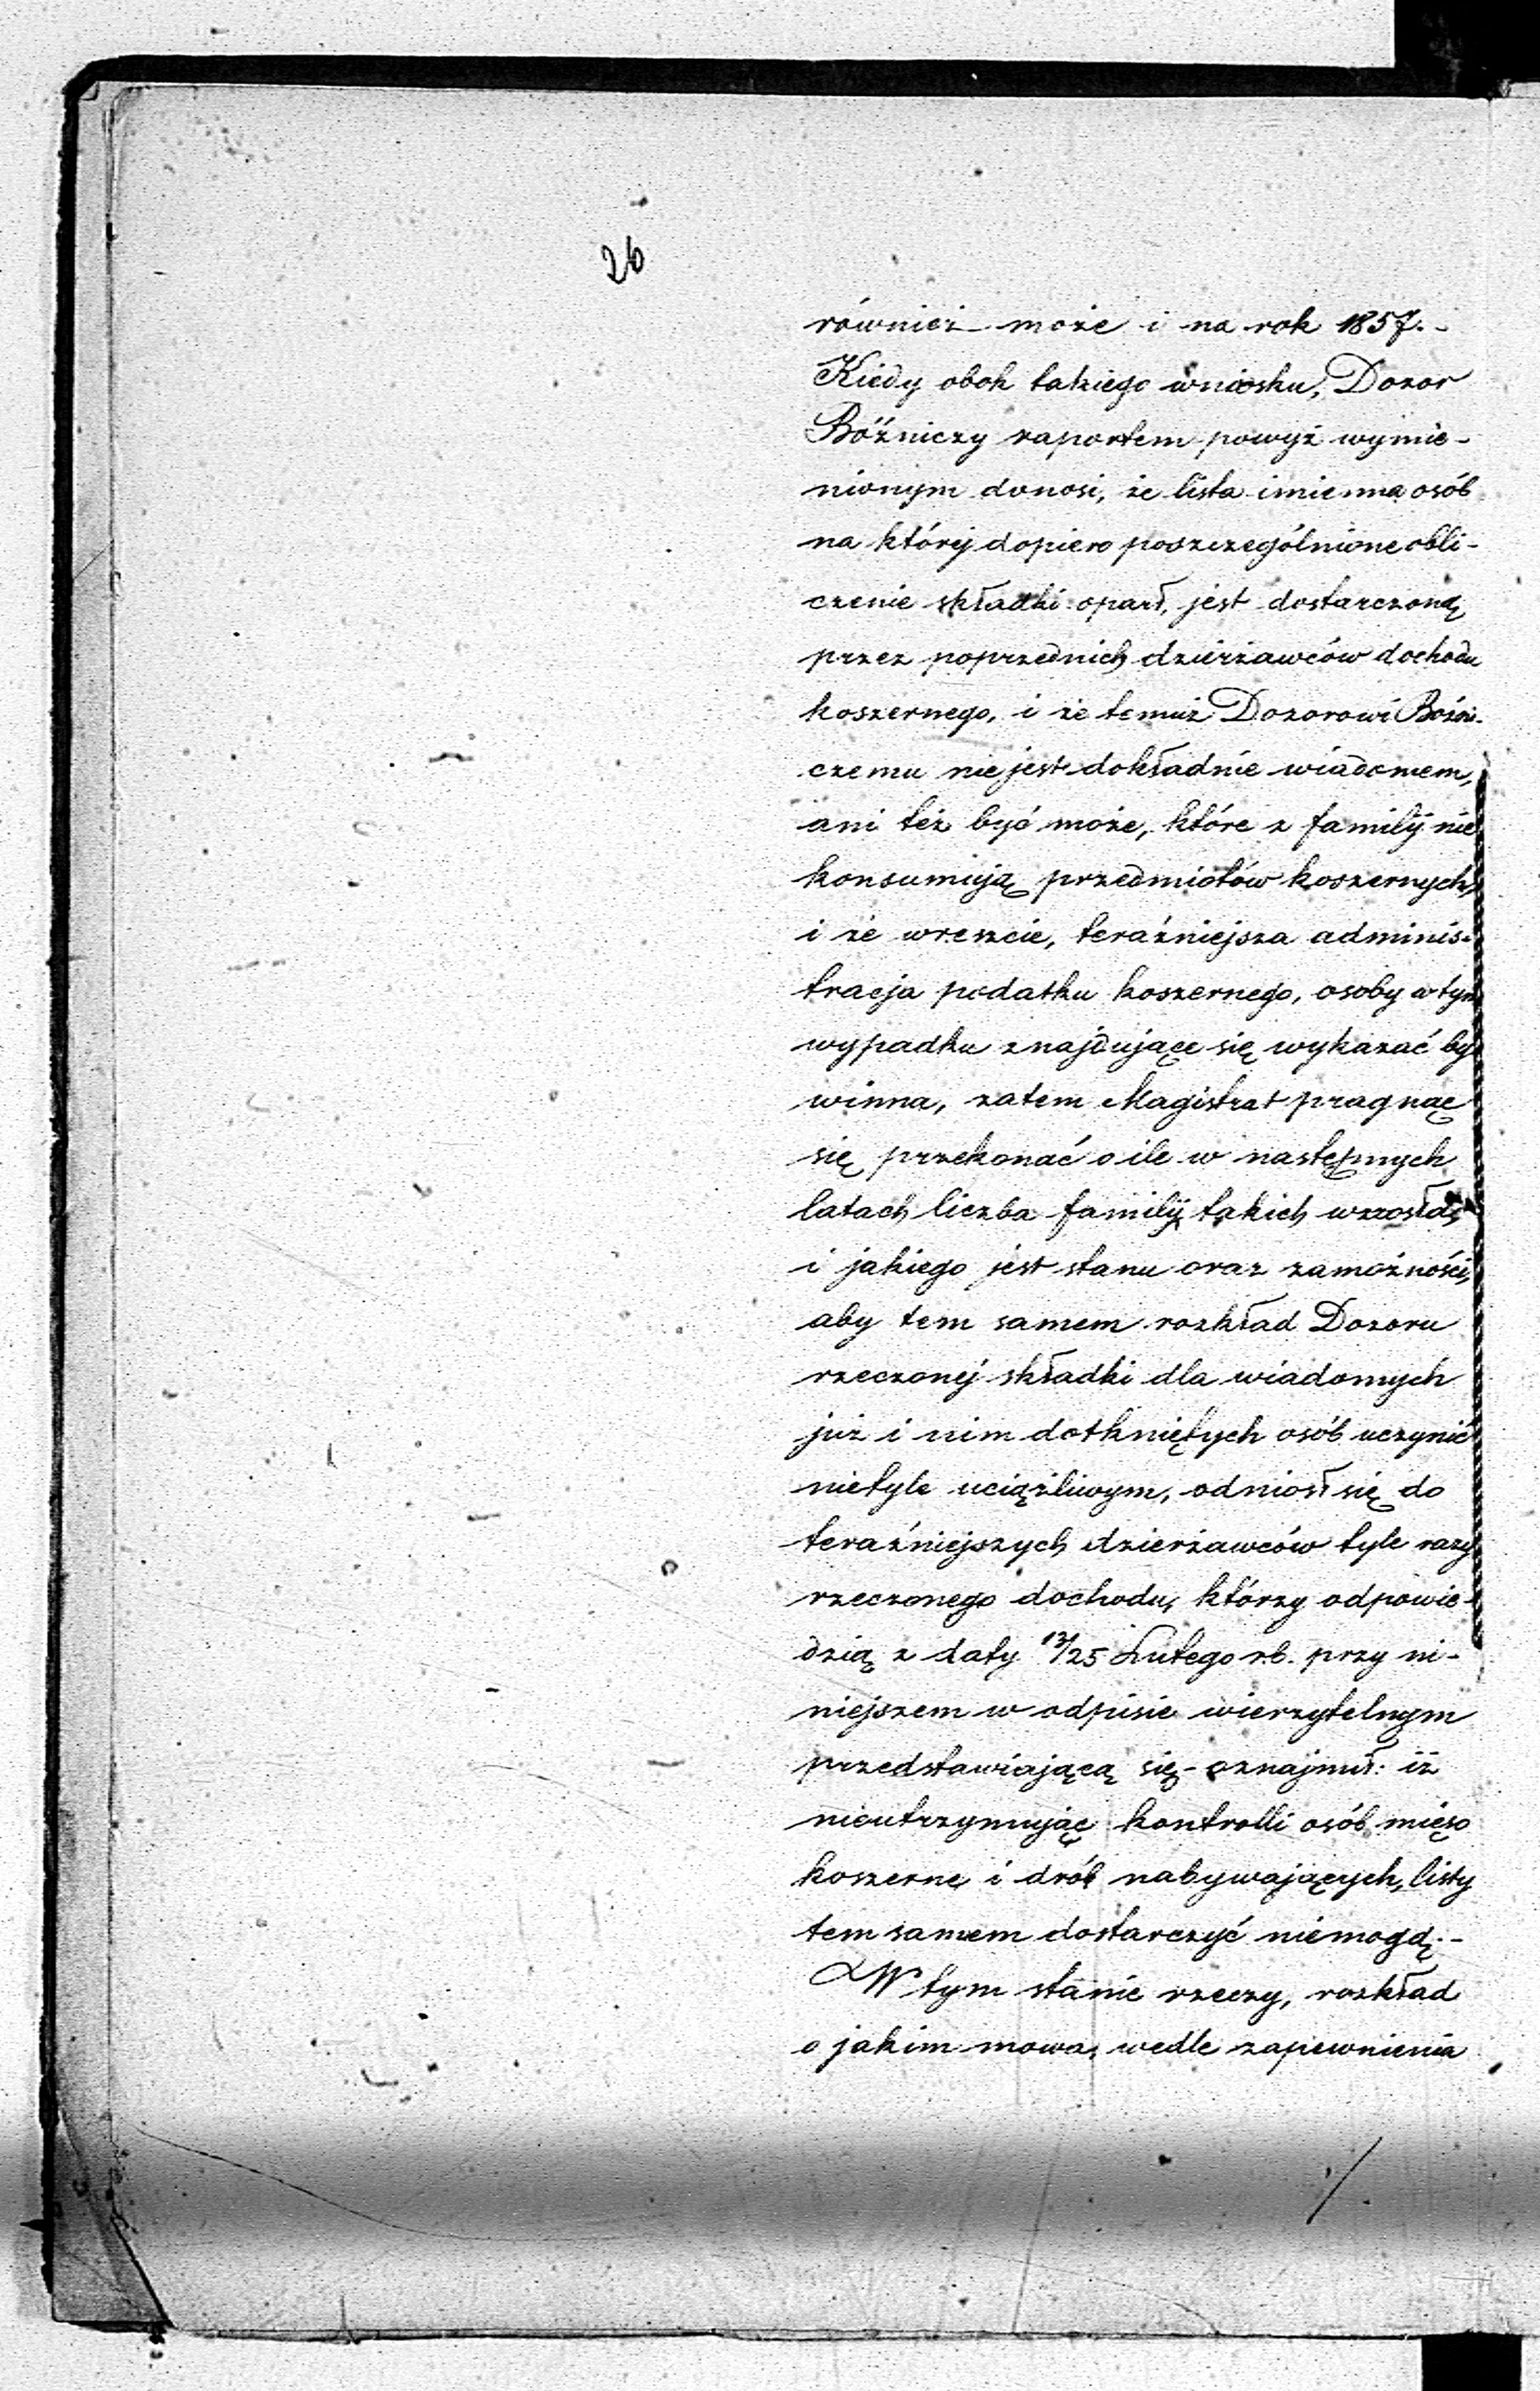 26
również może i na rok 1857.-
Kiedy obok takiego wniosku, Dozor
Bóźniczy raportem powyż wymie-
nionym donosi, że lista imienna osób
na któréj dopiero poszczególnione obli-
czenie składki oparł, jest dostarczoną
przez poprzednich dzierżawców dochodu
koszernego, i że temuż Dozorowi Boźni-
czemu nie jest dokładnie wiadomem,
ani też być może, które z familij nie
konsumują przedmiotów koszernych,
i że wreszcie, teraźniejsza adminis-
tracja podatku koszernego, osoby w tym
wypadku znajdujące się wykazać by
winna, zatem Magistrat pragnąc
się przekonać o ile w następnych
latach liczba familij takich wzrosła,
i jakiego jest stanu oraz zamożności,
aby tem samem rozkład Dozoru
rzeczonej składki dla wiadomych
już i nim dotkniętych osób uczynić
nietyle uciążliwym, odniosł się do
teraźniejszych dzierżawców tyle razy
rzeczonego dochodu, którzy odpowie-
dzią z daty 13/25 Lutego r.b. przy ni-
niejszem w odpisie wierzytelnym
przedstawiającą się - oznajmił: iż
nieutrzymując kontrolli osób mięso
koszerne i drób nabywających, listy
tem samem dostarczyć niemogą.-
W tym stanie rzeczy, rozkład
o jakim mowa, wedle zapewnienia
./.